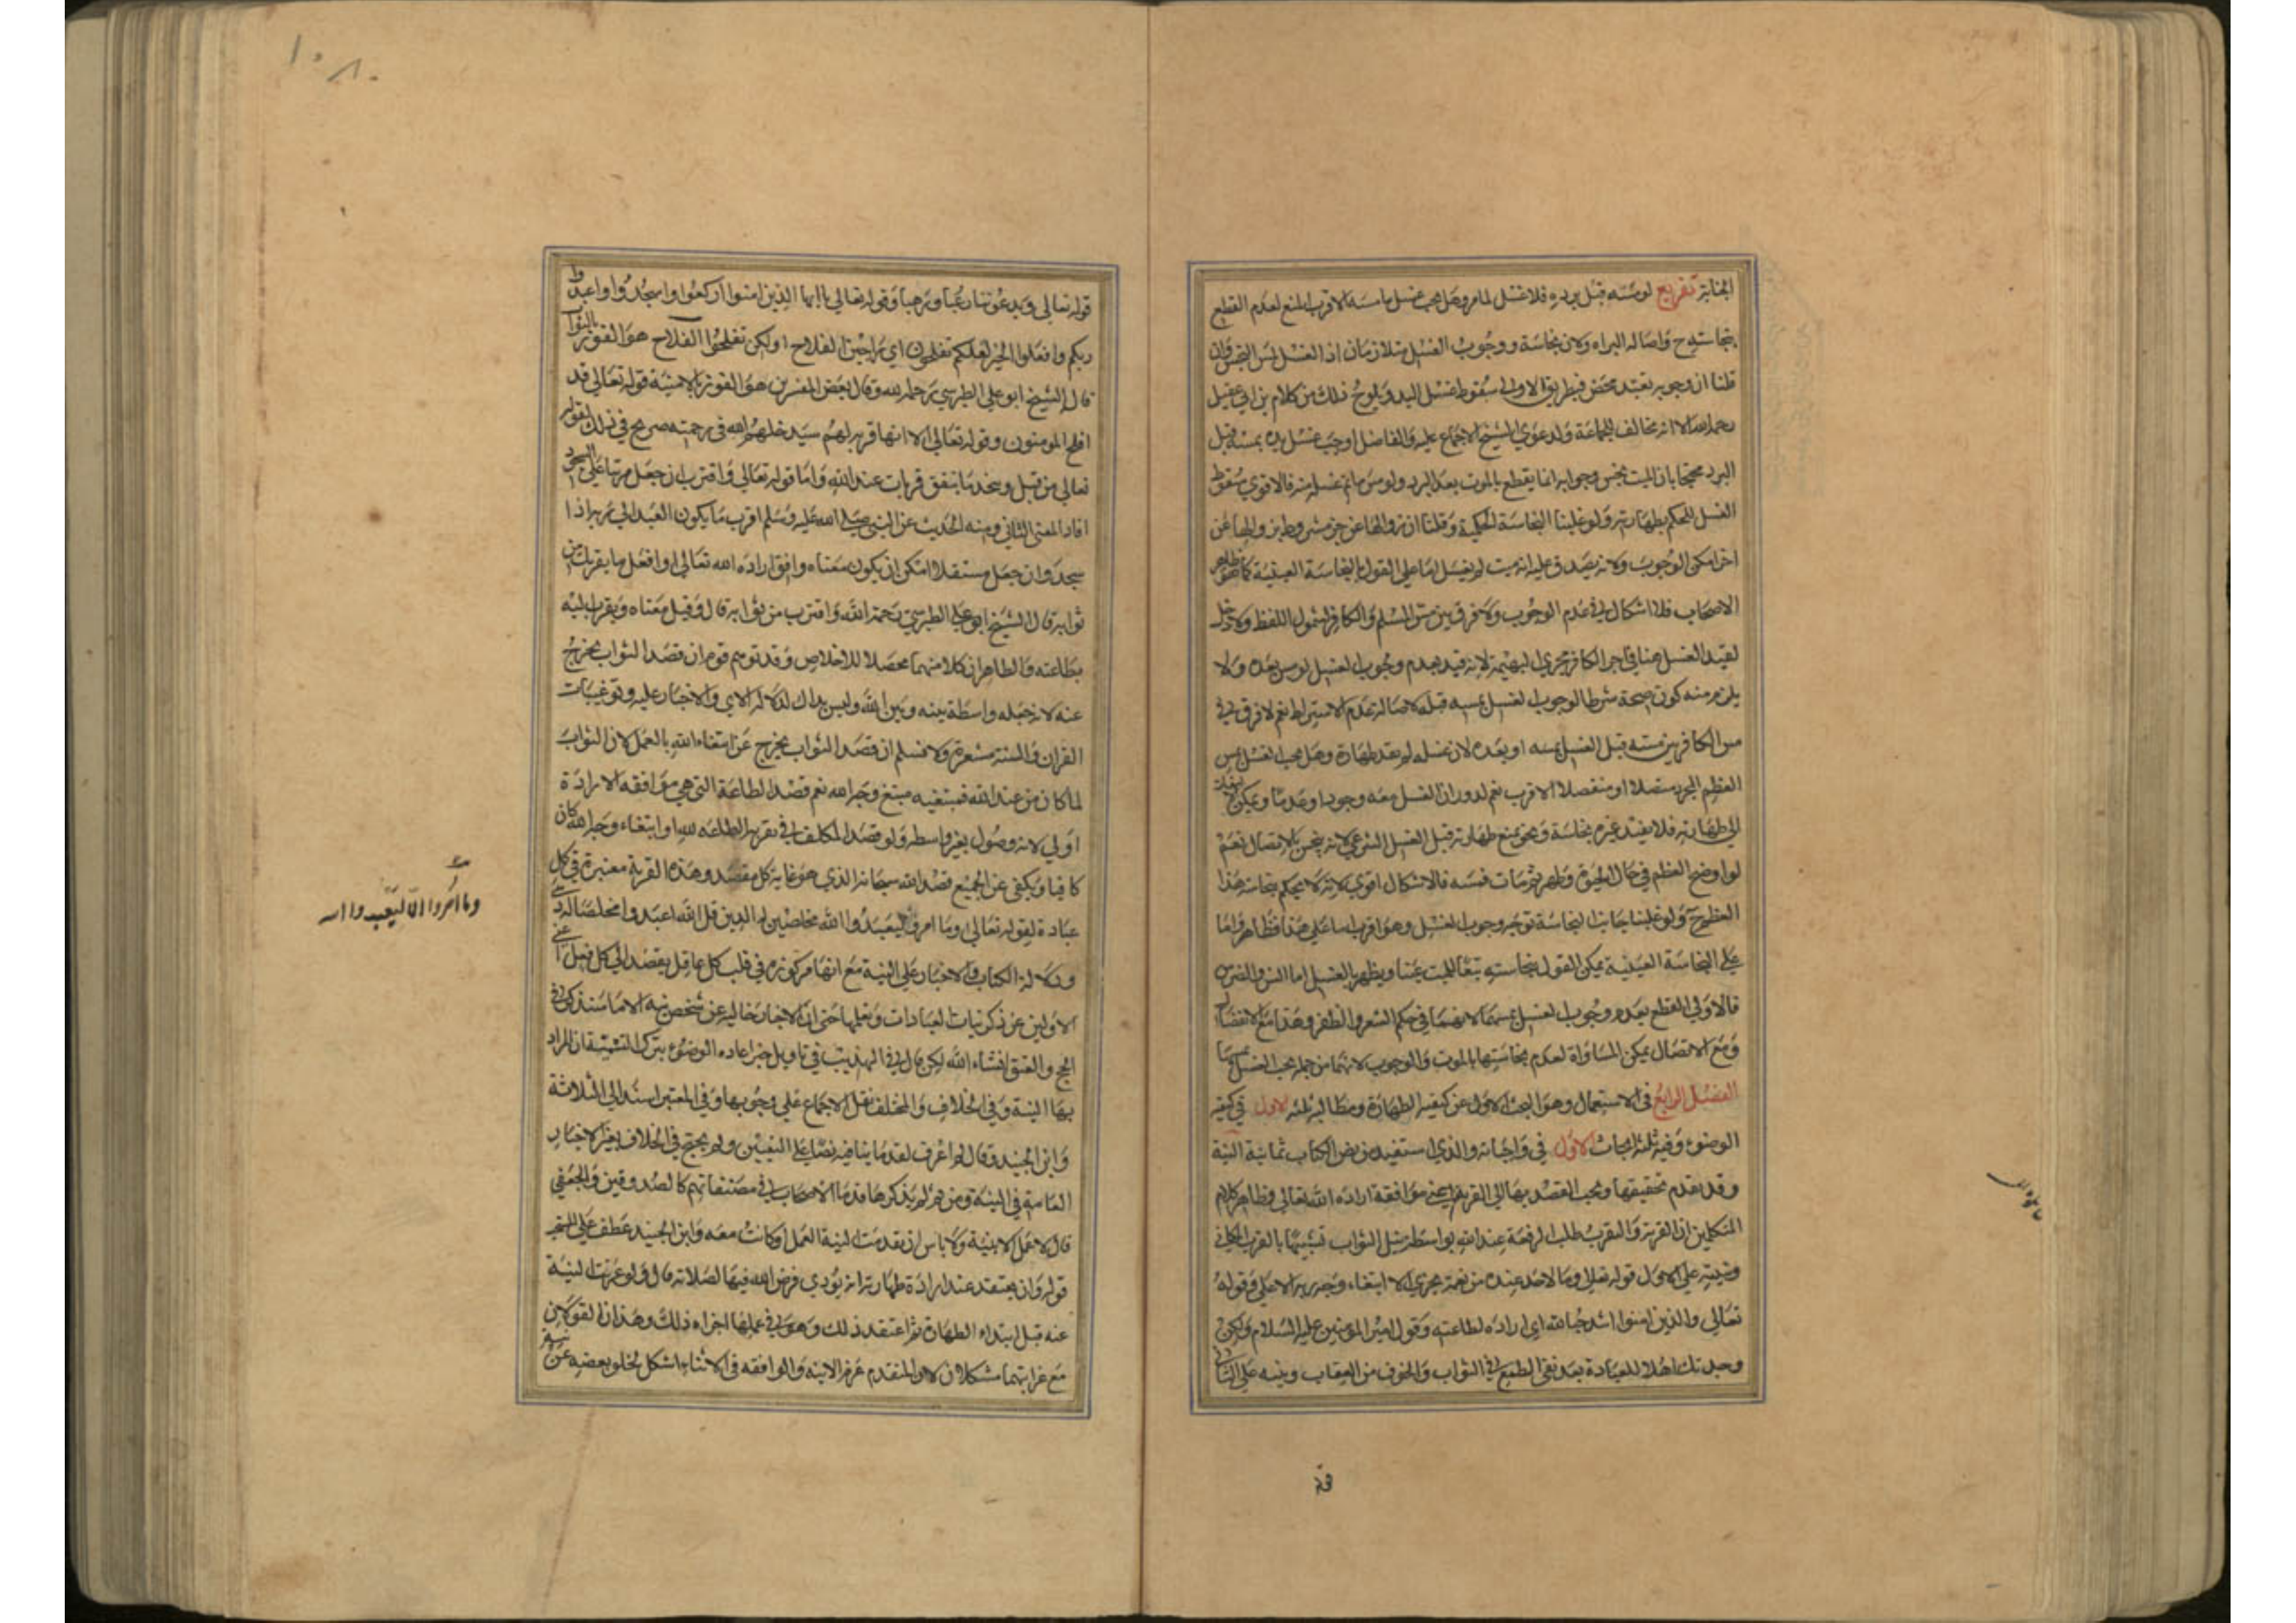 الجنابة تفريع لو مسه قبل برده فلا غسل لما مر وهل يجب غسل ما مسه الاقرب المنع لعدم القطع
بنجاسته ح واصالة البراه ولان نجاسة ووجوب الغسل متلازمان اذ الغسل لمس النجس وان
قلنا ان وجوبه تعبد محض فبطريق الاولى سقوط غسل اليد ويلوح ذلك من كلام بن ابي عقيل
رحمه الله الا انه مخالف للجماعة ولدعوي الشيخ الاجماع عليه والفاضل اوجب غسل يده بمسه قبل
البرد محتجا بان الميت نجس وجوابه انما يقطع بالموت بعد البرد ولو مس ما تم غسله منه فالاقوي سقوط
الغسل للحكم بطهارته ولو غلبنا النجاسة الحكمية وقلنا ان زوالها عن جزء مشروط بزوالها عن
اخر امكن الوجوب ولانه يصدق عليه انه ميت لم يغسل اما على القول بالنجاسة العينية كما هو ظاهر
الاصحاب فلا اشكال في عدم الوجوب ولا فرق بين مس المسلم والكافر لشمول اللفظ ولا دخل
لقيد الغسل هنا في اجرا الكافر مجري البهيمة لانه قيد بعدم وجوب الغسل لو مس بعده ولا
يلزم منه كون صحة شرطا لوجوب الغسل بمسه قبله لاصالة عدم الاشتراط نعم لا فرق في
مس الكافر بين مسه قبل الغسل او بعده لان غسله لم يفد طهارة وهل يجب الغسل بمس
العظم المجرد متصلا او منفصلا الاقرب نعم لدوران الغسل معه وجودا وعدما ويمكن
الى طهارته فلا يفيد غيره نجاسة ونحن نمنع طهارته قبل الغسل الشرعي لانه ينجس بالاتصال نعم
لو اوضح العظم في حال الحيوة وطهر ثم مات فمسه فالاشكال اقوي لانه لا يحكم بنجاسة هذا
العظم ح ولو غلبنا جانب النجاسة توجه وجوب الغسل وهو اقرب اما على هذا فظاهر واما
على النجاسة العينية يمكن القول بنجاسته تبعا للميت عينا ويطهر بالغسل اما السن والضرس
فالاولي القطع بعدم وجوب الغسل بمسهما لانهما في حكم الشعر والظفر هذا مع الانفصال
ومع الاتصال يمكن المساواة لعدم نجاستها بالموت والوجوب لانهما من جملة يجب الغسل بمسها
الفصل الرابع في الاستعمال وهو البحث الاول عن كيفيه الطهارة ومطالبه ثلثه الاول في كيفيه
الوضوء وفيه ثلثه ابحاث الاول في واجباته والذي استفيد من نص الكتاب ثمانية النية
وقد تقدم تحقيقها ويجب القصد بها الى القربة يعني موافقة ارادة الله تعالى وظاهر كلام
المتكلمين ان القربة والتقرب طلب الرفعة عند الله بواسطة نيل الثواب تشبيها بالقرب المكاني
وتنبيه على الاول قوله تعالى وما لاحد عنده من نعمة تجزي الا ابتغاء وجه ربه الاعلى وقوله
تعالى والذين امنوا اشد حبا لله اي ارادة لطاعته وقول امير المومنين عليه السلام ولكن
وجدتك اهلا للعبادة بعد نفي الطمع في الثواب والخوف من العقاب وينبه على الثاني
قوله
قوله تعالى ويدعوننا رغبا ورهبا وقوله تعالى يا ايها الذين امنوا اركعوا واسجدوا واعبدوا
ربكم وافعلوا الخير لعلكم تفلحون اي راجين الفلاح او لكي تفلحوا الفلاح هو الفوز بالثواب
قال الشيخ ابو علي الطبرسي رحمه الله وقال بعض المفسرين هو الفوز بالامنية قوله تعالى قد
افلح المومنون وقوله تعالى الا انها قربة لهم سيدخلهم الله في رحمته صريح في ذلك لقوله
تعالى من قبل ويتخذ ما ينفق قربات عند الله واما قوله تعالى واقترب ان جعل مرتبا على السجود
افاد المعنى الثاني ومنه الحديث عن النبي صلى الله عليه وسلم اقرب ما يكون العبد الي ربه اذا
سجد وان جعل مستقلا امكن ان يكون معناه وافق ارادة الله تعالى او افعل ما يقربك من
ثوابه قال الشيخ ابو علي الطبرسي رحمة الله واقترب من ثوابه قال وقيل معناه وتقرب اليه
بطاعته والظاهر ان كلا منهما محصل للاخلاص وقد توهم قوم ان قصد الثواب يخرج
عنه لانه جعله واسطة بينه وبين الله وليس بذاك لدلالة الاي والاخبار عليه وترغيبات
القران والسنة مشعرة ولا نسلم ان قصد الثواب يخرج عن ابتغاء الله بالعمل لان الثواب
لما كان من عند الله فمبتغيه مبتغ وجه الله نعم قصد الطاعة التي هي موافقة الارادة
اولي لانه وصول بغير واسطه ولو قصد المكلف في تقربه الطاعه لله او ابتغاء وجه الله كان
كافيا ويكفي عن الجميع قصد الله سبحانه الذي هو غاية كل مقصد وهذه القربة معتبرة في كل
عبادة لقوله تعالى وما امروا الا ليعبدوا الله مخلصين له الدين قل الله اعبد مخلصا له ديني
ودلالة الكتاب والاخبار على النية مع انها مركوزة في قلب كل عاقل يقصد الي كل فعل اغنى
الاولين عن ذكر نيات العبادات وتعليمها حتى ان الاخبار خالية عن شخص نية الا ما سنذكره في
الحج والعتق انشاء الله لكن قال في التهذيب في تاويل خبر اعادة الوضوء بترك التسمية ان المراد
بها النية وفي الخلاف والمختلف نقل الاجماع على وجوبها وفي المعتبر اسنده الي الثلاثة
وابن الجنيد وقال لم اعرف لقدمائنا فيه نصا على التعيين ولم يحتج في الخلاف بغير الاخبار
العامة في النية ومن ثم لم يذكرها قدماء الاصحاب في مصنفاتهم كالصدوقين والجعفي
قال لا عمل الا بنية ولا باس ان تقدمت النية العمل او كانت معه وابن الجنيد عطف على المستحب
قوله وان يعتقد عند ارادة طهارته انه يؤدي فرض الله فيها لصلاته قال ولو عزبت النية
عنه قبل ابتداء الطهارة ثم اعتقد ذلك وهو في عملها اجزاه ذلك وهذان القولان
مع غرابتهما مشكلان لان المتقدم عزم لا نية والواقعة في الاثناء اشكل لخلو بعضه عن
وما امروا الا ليعبدوا الله